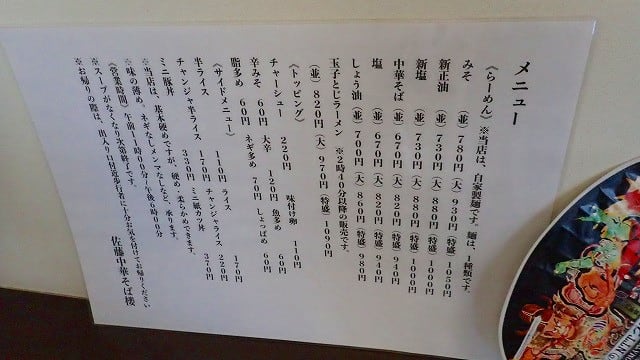 メニュー
《らーめん》 ※当店は、自家製麺です。麺は、1種類です。
みそ (並) 780円 (大) 930円 (特盛) 1050円
新正油 (並) 730円 (大) 880円 (特盛) 1000円
新塩 (並) 730円 (大) 880円 (特盛) 1000円
中華そば (並) 670円 (大) 820円 (特盛) 940円
塩 (並) 670円 (大) 820円 (特盛) 940円
しょう油 (並) 700円 (大) 860円 (特盛) 980円
玉子とじラーメン ※2時40分以降の販売です。
(並) 820円 (大) 970円 (特盛) 1090円
《トッピング》
チャーシュー 220円 味付け卵 110円
辛みそ 60円 大辛 120円 魚多め 60円
脂多め 60円 ネギ多め 70円 しょっぱめ 60円
《サイドメニュー》
半ライス 110円 ライス 170円
チャンジャ半ライス 170円 チャンジャライス 220円
ミニ豚丼 330円 ミニ紙カツ丼 370円
※当店は、基本硬めですが、硬め・柔らかめできます。
※味の薄め、ネギなしメンマなしなど、承ります。
《営業時間》午前11時00分/午後3時00分
※スープがなくなり次第終了です。
※お帰りの際は、出入り口付近歩行者に十分お気を付けてお帰りください
佐藤中華そば楼